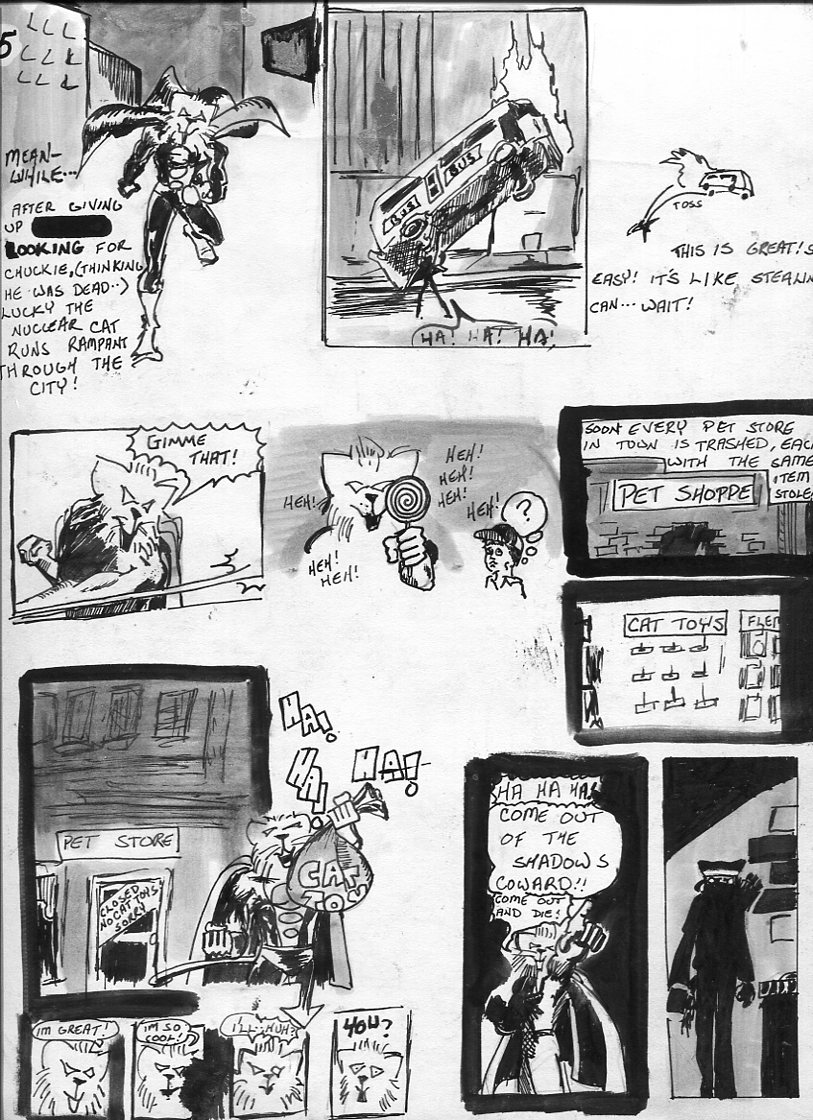 5
MEAN-
WHILE...
AFTER GIVING
UP
LOOKING FOR
CHUCKIE, (THINKING
HE WAS DEAD..)
LUCKY THE
NUCLEAR CAT
RUNS RAMPANT
THROUGH THE
CITY!
BUS
BUS
HA! HA! HA!
TOSS
THIS IS GREAT! S
EASY! IT'S LIKE STEALIN
CAN... WAIT!
GIMME
THAT!
HEH!
HEH!
HEH!
HEH!
HEH!
HEH!
HEH!
?
SOON EVERY PET STORE
IN TOWN IS TRASHED, EAC
WITH THE SAME
ITEM
STOLE
PET SHOPPE
CAT TOYS
FLE
HA!
HA!
HA!
PET STORE
CLOSED
NO CAT TOYS
SORRY
CAT
TOY
I'M GREAT!
I'M SO
COOL!
I'LL..HUH?
YOU?
HA HA HA!
COME OUT
OF THE
SHADOWS
COWARD!!
COME OUT
AND DIE!